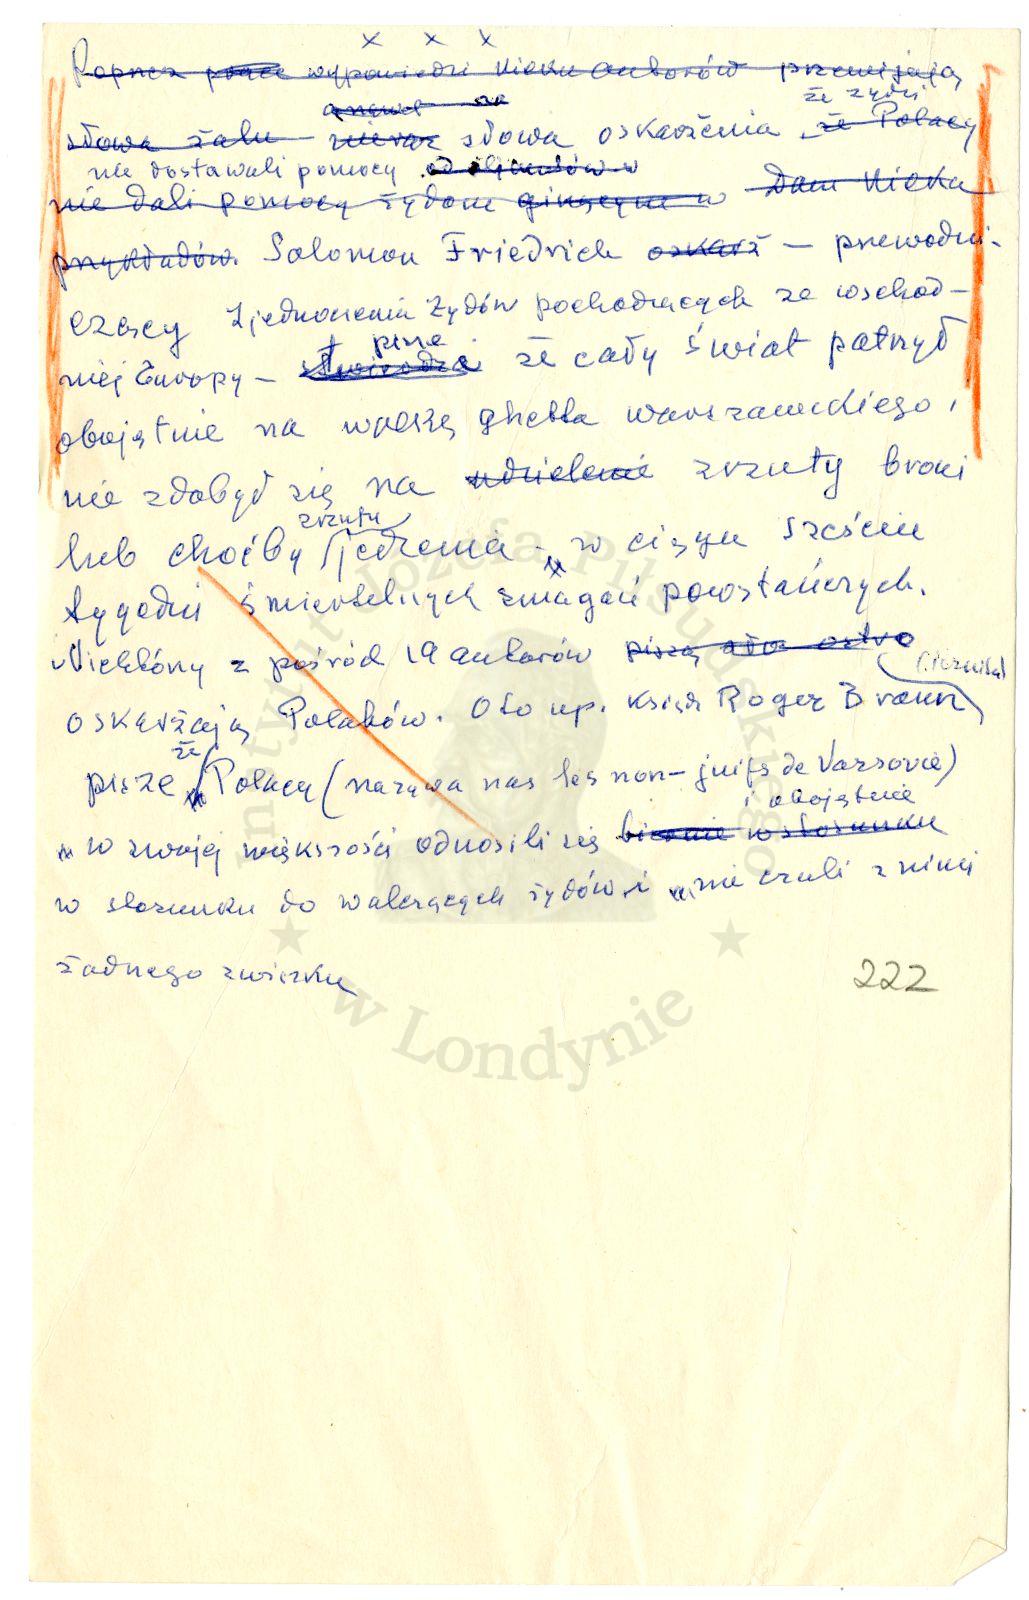 x x x
Poprzez prace wypowiedzi kilku autorów przewijają
a nawet są
że żydzi
słowa żalu nieraz słowa oskarżenia że Polacy
nie dostawali pomocy
nie dali pomocy żydom ginącym w Dam kilka
przykładów. Solomon Friedrich oskarż – przewodni-
czący Zjednoczenia Żydów pochodzących ze wschod-
pisze
niej Europy – stwierdza że cały świat patrzył
obojętnie na walkę ghetta warszawskiego i
nie zdobył się na udzielenie zrzuty broni
zrzutu
lub choćby jedzenia w ciągu sześciu
tygodni śmiertelnych zmagań powstańczych.
Niektórzy z pośród 19 autorów piszą ostro
oskarżają Polaków. Oto np. ksiądz Roger Braun
że
pisze Polacy (nazywa nas les non-juifs de Varsovie)
i obojętnie
w swojej większości odnosili się biernie w stosunku
w stosunku do walczących żydów i nie czuli z nimi
żadnego związku
222
Instytut Józefa Piłsudskiego
★ w Londynie ★